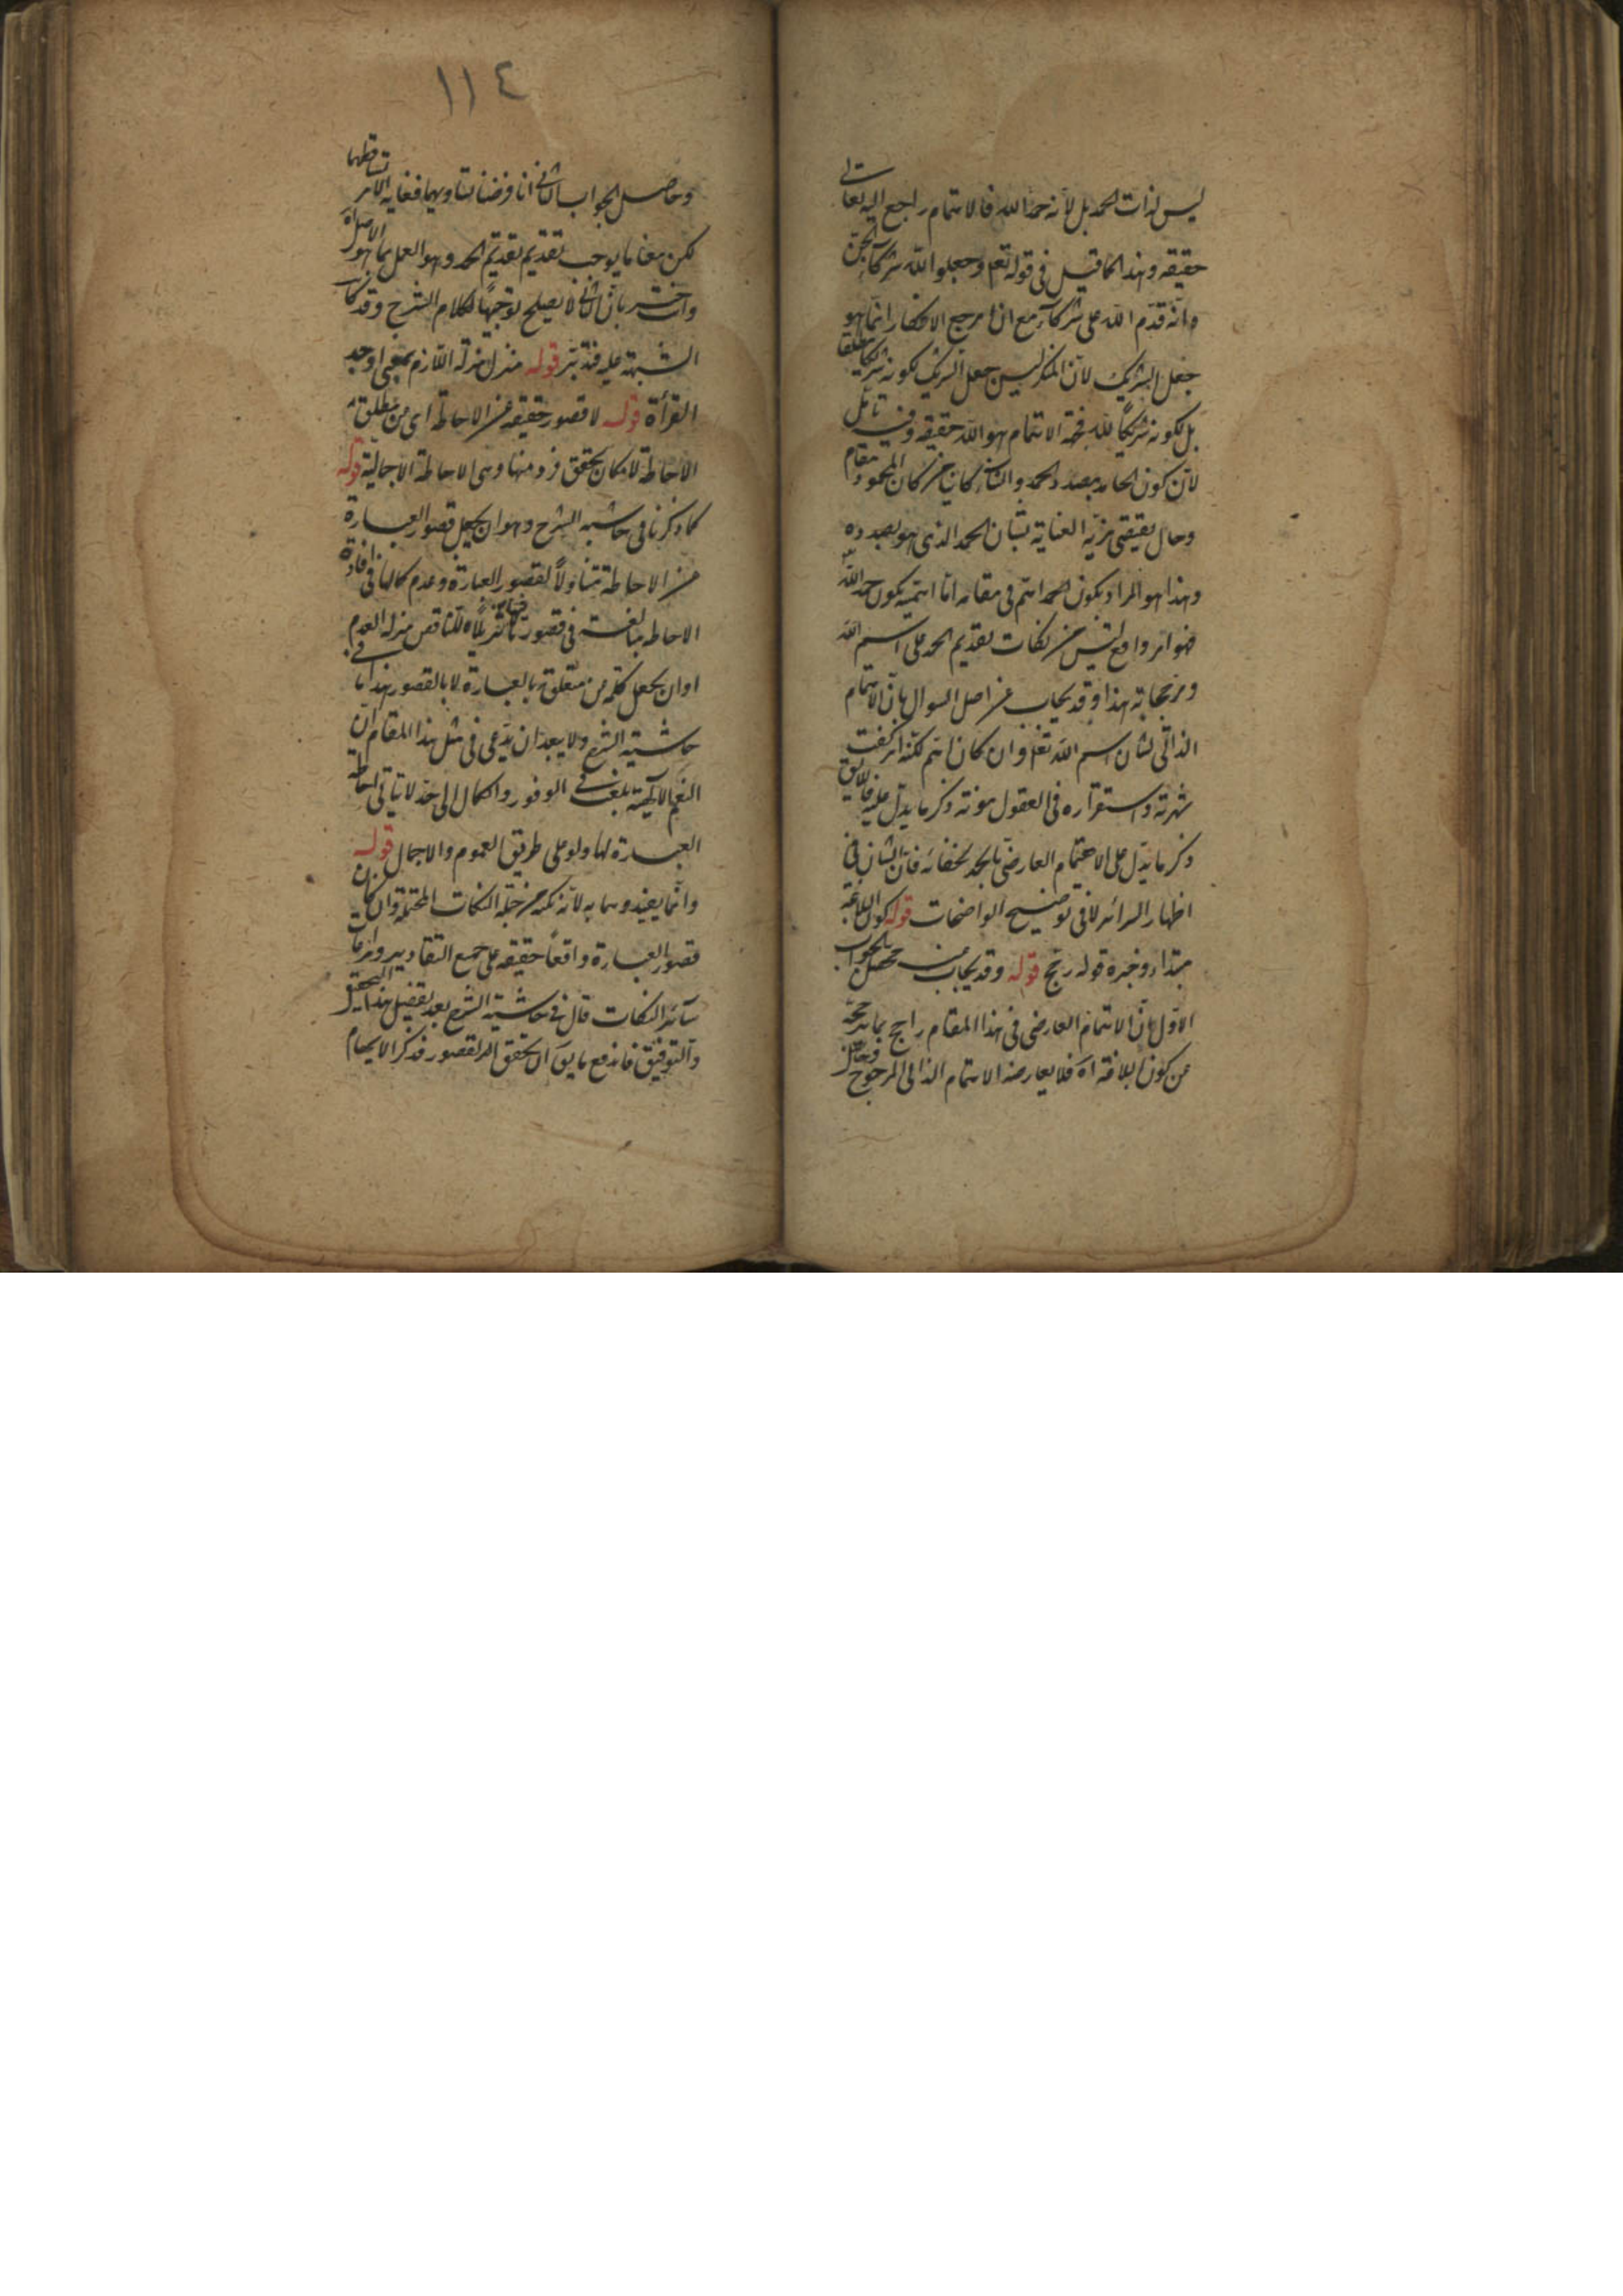 ليس لذات الحمد بل لأنه حمد الله فالاهتمام راجع اليه تعالى
حقيقه وهذا كما قيل فى قوله تعه وجعلوا لله شركاء الجن
وانه قدم الله على شركاء مع ان مرجع الانكار انما هو
جعل الشريك لان المنكر ليس جعل الشريك لكونه شريكا مطلقا
بل لكونه شريكا لله فجهة الاهتمام هو الله حقيقه وفيه تأمل
لان كون الحامد بصدد الحمد والثناء كان المحمود مقام
وحال يقتضى مزية العناية بشان الحمد الذى هو بصدده
وهذا هو المراد بكون الحمد اهم فى مقامه اما اهمية بكون حمد الله
فهو امر واقع ليس من نكات تقديم الحمد على اسم الله
ومرجحاته هذا وقد يجاب عن اصل السوال بان الاهتمام
الذاتى لشان اسم الله تعه وان كان اهم لكنه كفت
شهرته واستقراره فى العقول مونة ذكر ما يدل عليه فاللايق
ذكر ما يدل على الاهتمام العارضى بالحمد لخفائه فان الشان فى
اظهار السرائر لا فى توضيح الواضحات قوله كون البلاغة
مبتداء وخبره قوله رجح قوله وقد يجاب محصل الجواب
الاول ان الاهتمام العارضى فى هذا المقام راجح بما يرجحه
من كون البلاغة اه فلا يعارضه الاهتمام الذاتى المرجوح
١١٤
وحاصل الجواب الثانى انا فرضنا تساويهما فغاية الامر تساقطهما
لكن معنا ما يوجب تقديم الحمد وهو العمل بما هو الاصل
وانت خبير بان الثانى لا يصلح توجيها لكلام الشرح وقد
الشبهة عليه فتدبر قوله منزل منزلة اللازم بمعنى اوجد
القراة قوله لا قصور حقيقه عن الاحاطة اى من مطلق
الاحاطة لامكان تحقق فرد منها وهى الاحاطة الاجمالية قوله
كما ذكرنا فى حاشية الشرح وهو ان يجعل قصور العبارة
عن الاحاطة متناولا لقصور العبارة وعدم كمالها فى افادة
الاحاطة مبالغة فى قصور تنزيلا للناقص منزلة العدم
اوان يجعل كلمة من متعلق بالعبارة لا بالقصور هذا ما فى
حاشية الشرح ولا يبعد ان يدعى فى مثل هذا المقام ان
النعم الالهية بلغت فى الوفور والكمال الى حد لا يتاتى احاطة
العبارة لها ولو على طريق العموم والاجمال قوله
وانما يفيد وسما به لانه نكتة من جملة النكات المحتملة وان كان
قصور العبارة واقعا حقيقه على جميع التقادير
سائر النكات قال فى حاشية الشرح بعد تفصيل هذا التحقيق
والتوفيق فاندفع ما يق ان تحقق القصور فذكر الايهام